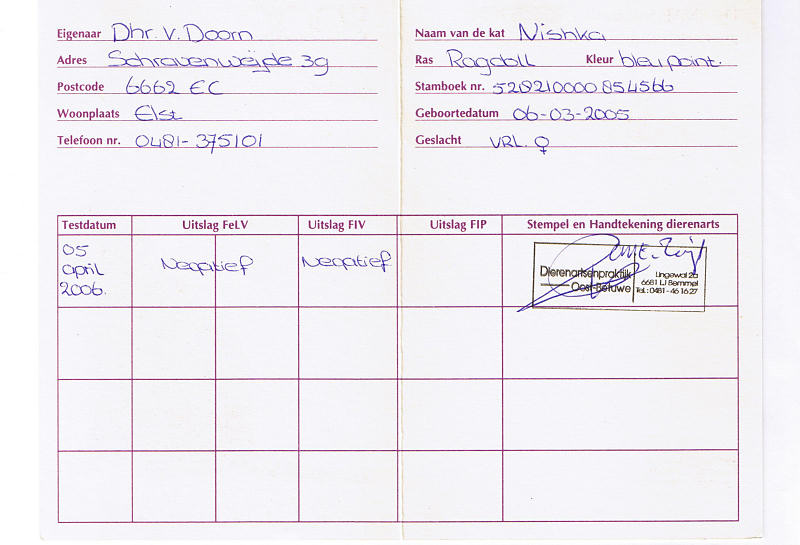 Eigenaar Dhr. v. Doorn
Adres Schravenweijde 39
Postcode 6662 EC
Woonplaats Elst
Telefoon nr. 0481-375101
Naam van de kat Nishka
Ras Ragdoll Kleur bleu point.
Stamboek nr. 528210000854566
Geboortedatum 06-03-2005
Geslacht VRL. ♀
Testdatum Uitslag FeLV Uitslag FIV Uitslag FIP Stempel en Handtekening dierenarts
05 april 2006. Negatief Negatief
Dierenartsenpraktijk
Oost-Betuwe
Lingewal 2a
6681 LJ Bemmel
Tel.: 0481 - 46 16 27